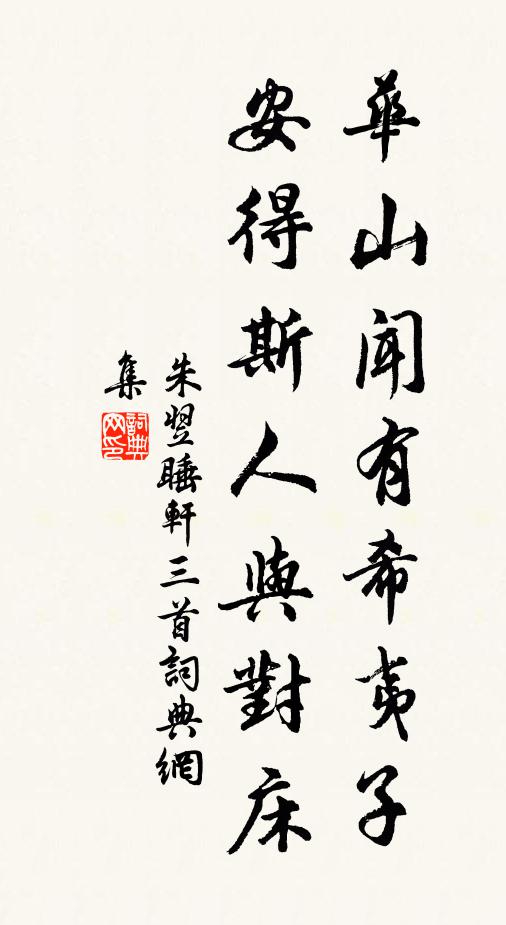 華山聞有希夷子
安得斯人與對床
朱翌睡軒三首詞典網
集
詞典
网印